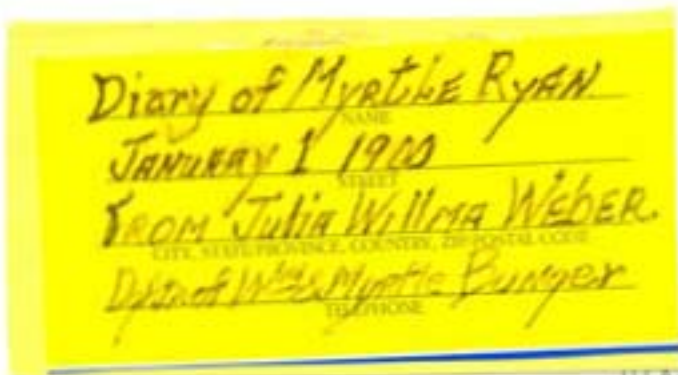 Diary of Myrtle Ryan
NAME
January 1 1900
STREET
From Julia Willma Weber.
CITY, STATE/PROVINCE, COUNTRY, ZIP/POSTAL CODE
of Myrtle Bunger
TELEPHONE